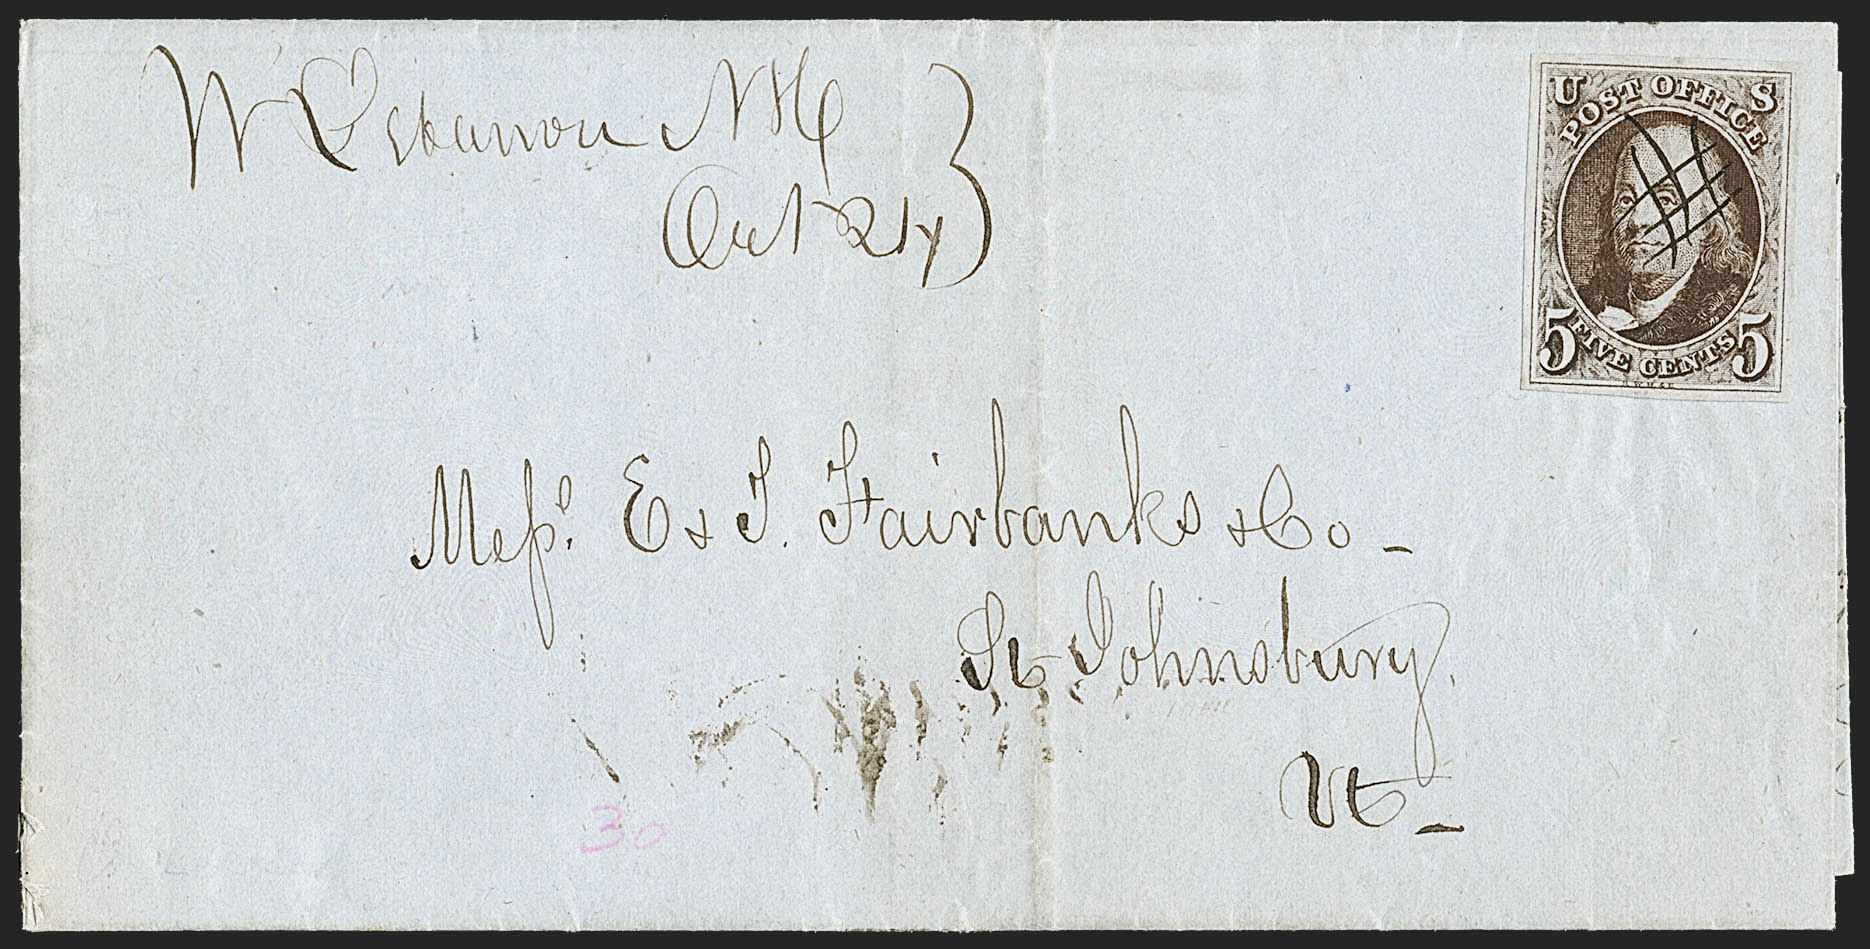 W Lebanon NH
Oct 24
U S
POST OFFICE
5 FIVE CENTS 5
R.W.H.& E.
Mess.ʳˢ E & T. Fairbanks & Co
St Johnsbury.
Vt
30